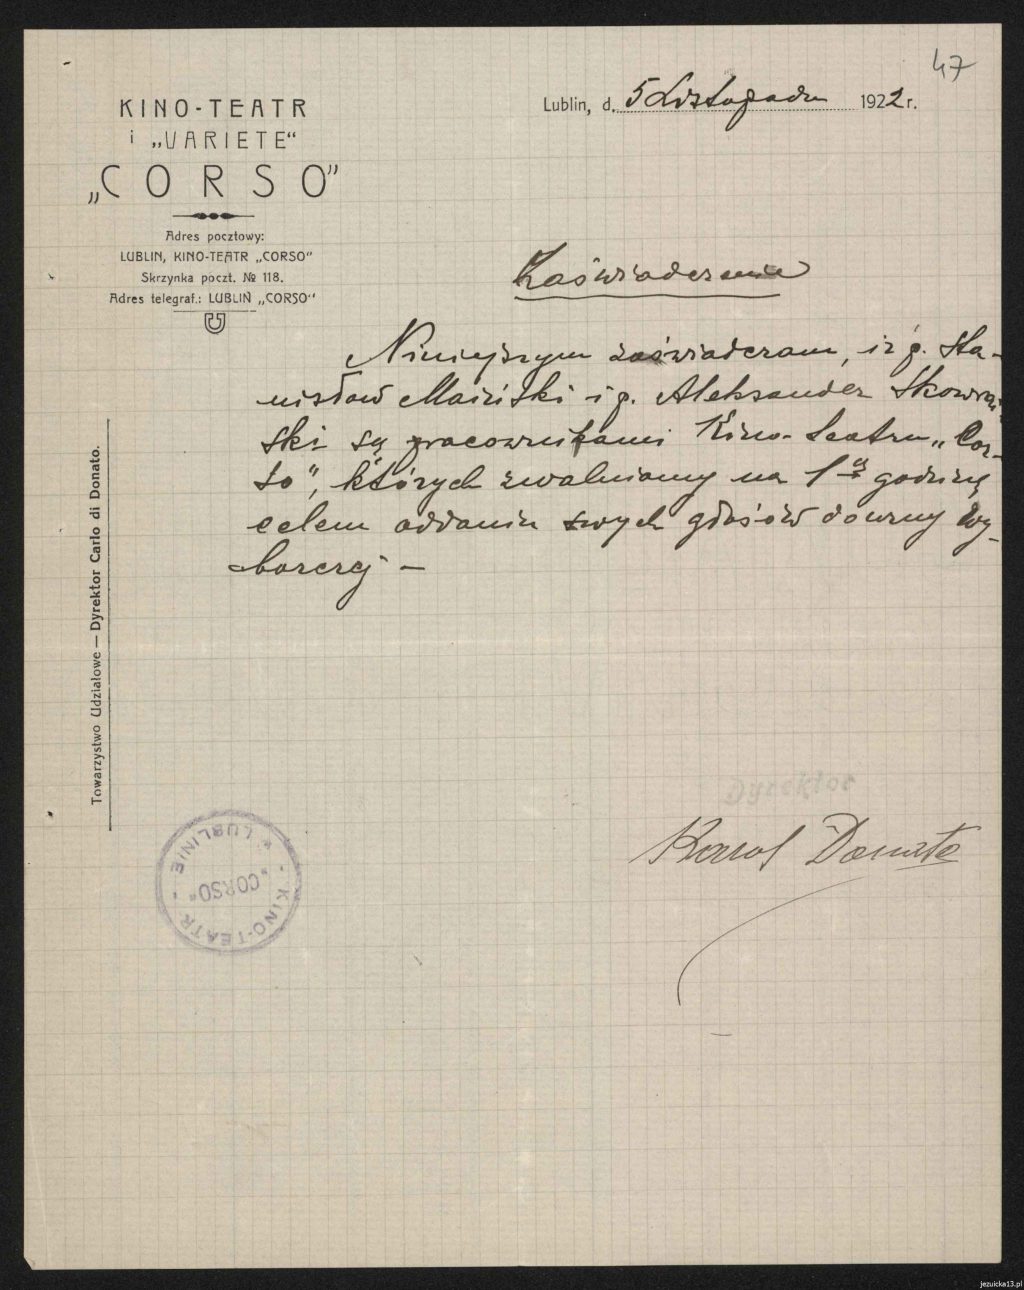 47
KINO-TEATR
i „VARIETE“
„CORSO”
Adres pocztowy:
LUBLIN, KINO-TEATR „CORSO“
Skrzynka poczt. № 118.
Adres telegraf.: LUBLIN „CORSO“
Lublin, d. 5 Listopada 1922 r.
Zaświadczenie
Niniejszym zaświadczam, iż p. Sta-
nisław i p. Aleksander
ski są pracownikami Kino-Teatru „Cor-
so“, których zwalniamy na 1ą godzinę
celem oddania swych głosów do urny Wy-
borczej —
Towarzystwo Udziałowe — Dyrektor Carlo di Donato.
Dyrektor
Karol Donato
- KINO-TEATR - „CORSO“ * LUBLINIE
jezuicka13.pl